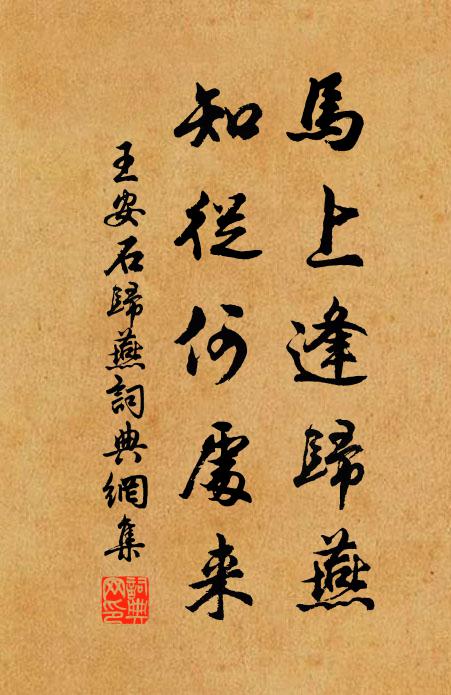 馬上逢歸燕
知從何處来
王安石歸燕詞典網集
詞典
网印